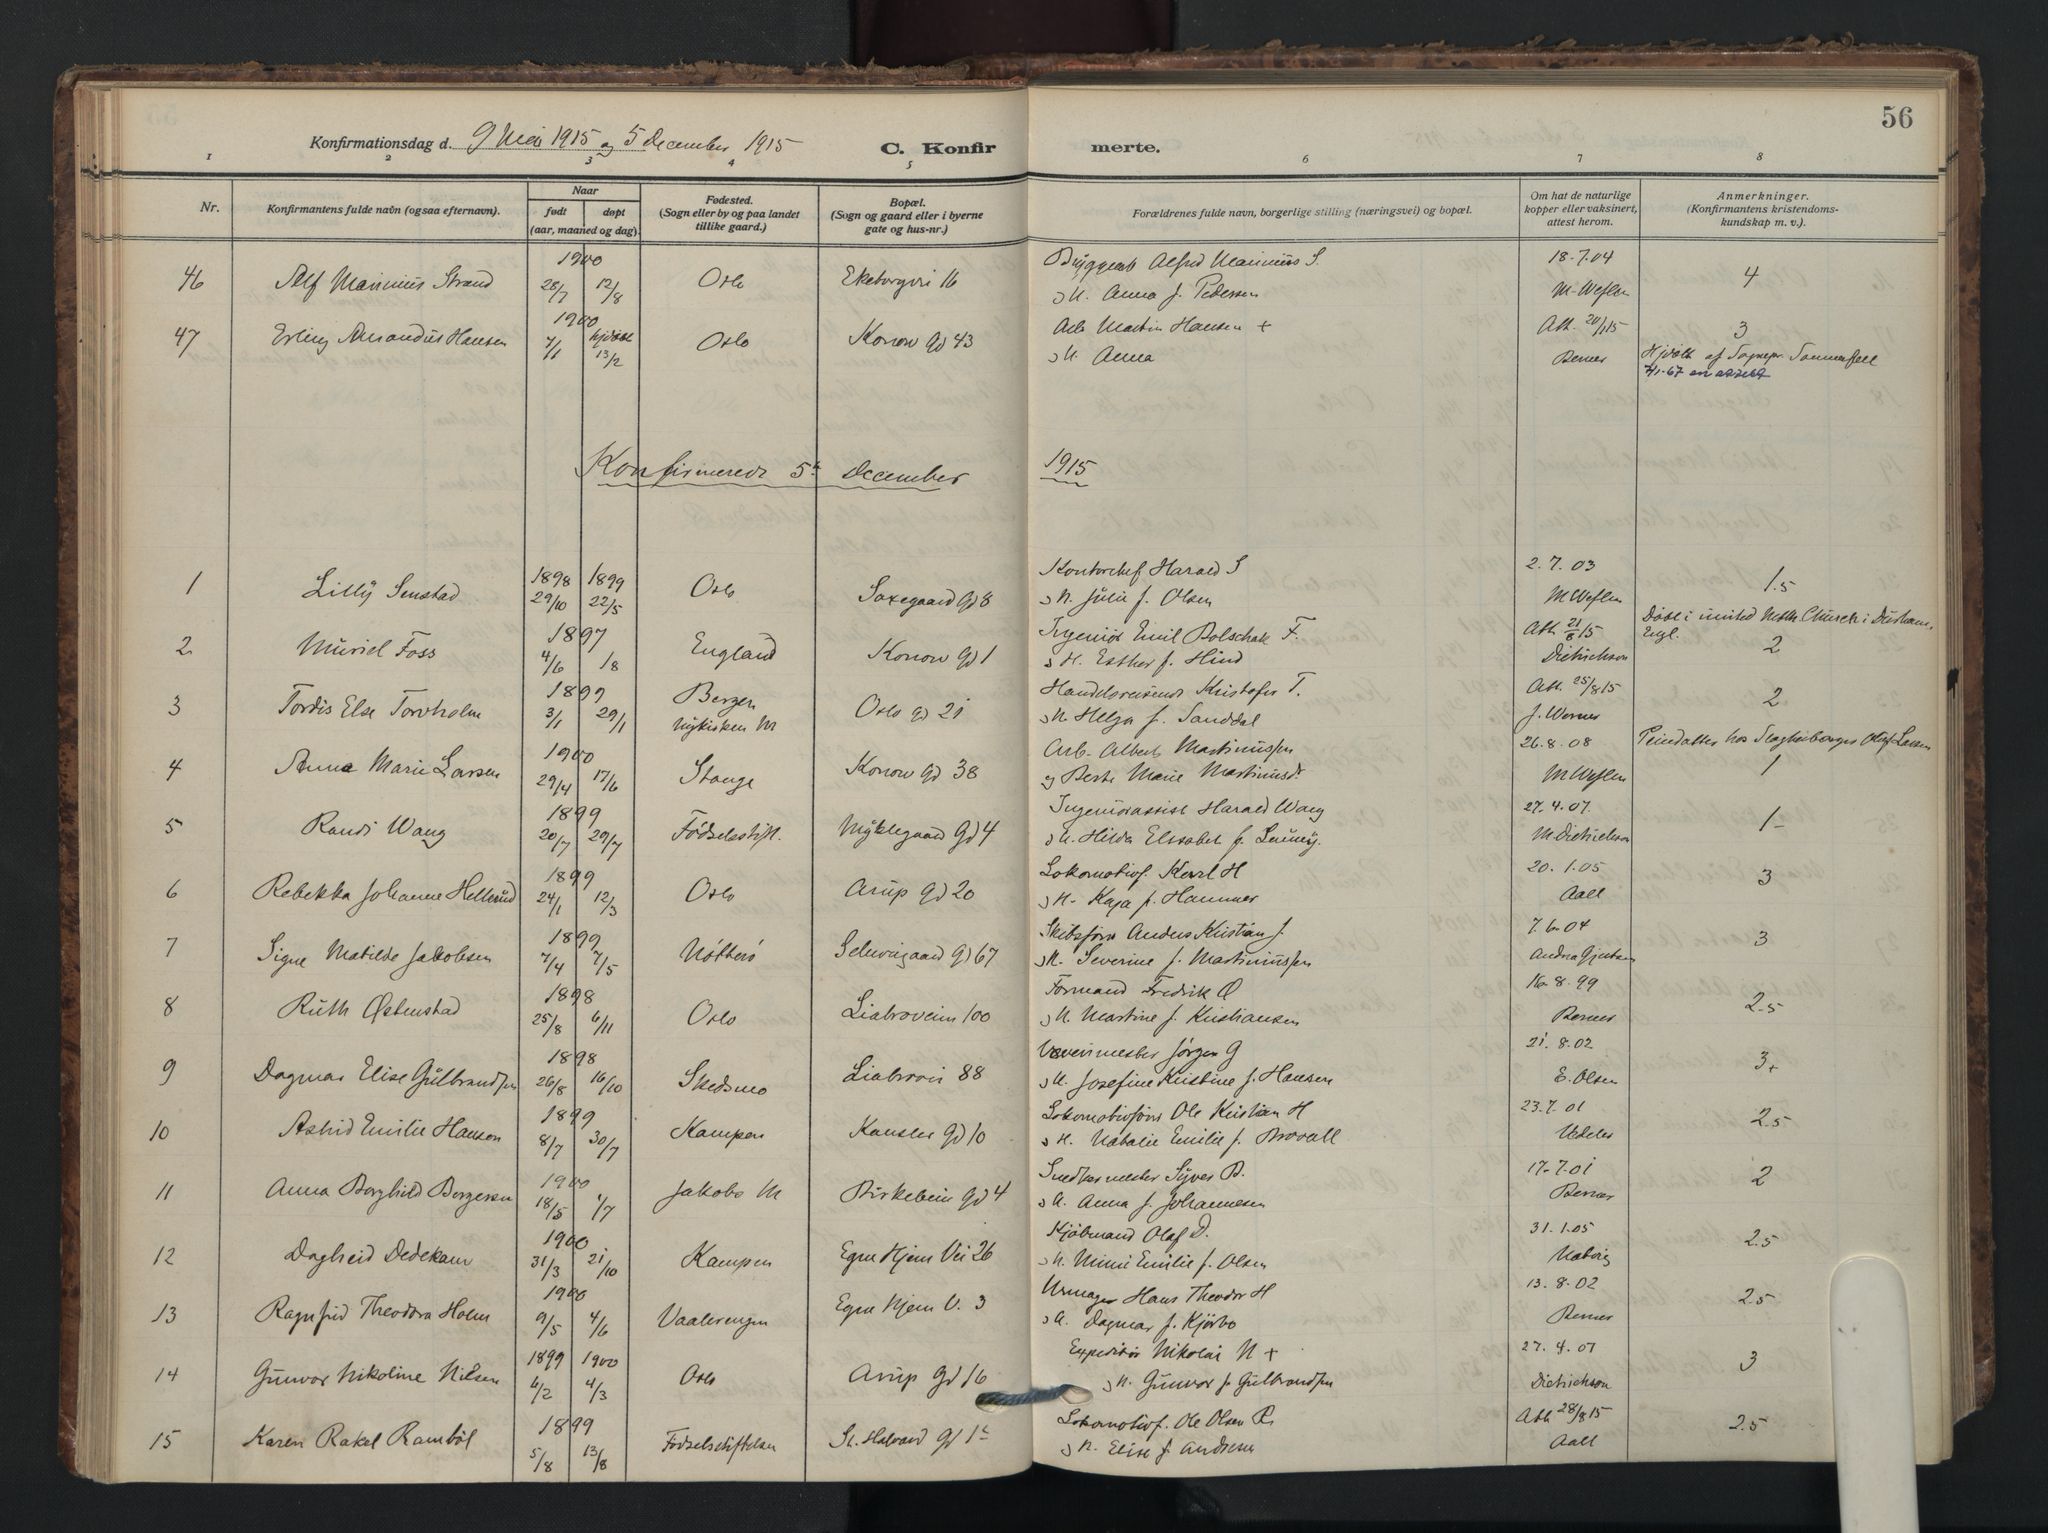 56
Konfirmationsdag d. 9 Mai 1915 og 5 December 1915
C. Konfir merte.
1 2 3 4 5 6 7 8
Nr.
Konfirmantens fulde navn (ogsaa efternavn).
Naar
født
døpt
(aar, maaned og dag).
Fødested.
(Sogn eller by og paa landet
tillike gaard.)
Bopæl.
(Sogn og gaard eller i byerne
gate og hus-nr.)
Forældrenes fulde navn, borgerlige stilling (næringsvei) og bopæl.
Om hat de naturlige
kopper eller vaksinert,
attest herom.
Anmerkninger.
(Konfirmantens kristendoms-
kundskap m. v.).
46 Alf Marinius Strand 1900 28/7 12/8 Oslo Ekebergvei 16 Alfred Marinius S. 18.7.04 4
H. Anna f. Pedersen M. Weflen
47 Erling Hansen 1900 7/1 hjdøbt 13/2 Oslo Konow Gd 43 Arb Martin Hansen + Att. 20/1 15 3
H. Anna Berner Hjdøbt af Sognepr.
Konfirmerede 5te December 1915
1 Lilly Senstad 1898 29/10 1899 22/5 Oslo Saxegaard Gd 8 Kontorchef Harald S 2.7.03 1.5
H. Julie f. Olsen M Weflen
Døbt i united Meth. Church i Durham,
Engl.
2 Muriel Foss 1897 4/6 1/8 England Konow Gd 1 Ingeniør Emil Bolschak F. Att 21/8 15 2
H. Esther f. Hind Dietrichson
3 Tordis Else Torvholm 1899 3/1 29/1 Bergen Nykirken M Oslo Gd 21 Handelsreisende Kristofer T. Att. 25/8 15 2
H. Helga f. Sanddal J. Werner
4 Anna Marie Larsen 1900 29/4 17/6 Stange Konow Gd 38 Arb. Albert Martiniussen 26.8.08 1
og Berte Marie Martinusdr M Weflen
5 Randi Wang 1899 20/7 29/7 Fødselsstift. Myklegaard Gd 4 Ingeniørassist Harald Wang 27.4.07. 1-
H. Hilda Elisabet f. M. Dietrichson
6 Rebekka Johanne Hellerud 1899 24/1 12/3 Oslo Arup Gd 20 Lokomotivf. Karl H 20.1.05 3
H. Kaja f. Hammer Aall
7 Signe Matilde Jakobsen 1899 7/4 7/5 Nøtterø Schweigaard Gd 67 Skibsfører Anders Kristian J. 7.6.04 3
H. Severine f. Martiniussen
8 Ruth Østenstad 1898 25/8 6/11 Oslo Liabroveien 100 Formand Fredrik Ø 16.8.99 2.5
H. Martine f. Kristiansen Berner
9 Dagmar Elise Gulbrandsen 1898 26/8 16/10 Skedsmo Liabrovei 88 Vævemester Jørgen G 21.8.02 3+
H. Josefine Kristine f. Hansen E. Olsen
10 Astrid Emilie Hansen 1899 8/7 30/7 Kampen Kansler Gd 10 Lokomotivfører Ole Kristian H 23.7.01 2.5
H. Natalie Emilie f. Brovall
11 Anna Borghild Borgersen 1900 18/5 1/7 Jakobs M Birkebein Gd 4 Snedkermester Syver B. 17.7.01 2
H. Anna f. Johannesen Berner
12 Dagheid Dedekam 1900 31/3 21/10 Kampen Egne Hjem Vei 26 Kjøbmand Olaf D. 31.1.05 2.5
H. Mimi Emilie f. Olsen
13 Ragnfrid Theodora Holm 1900 9/5 4/6 Vaalerengen Egne Hjem V. 3 Urmager Hans Theodor H 13.8.02 2.5
H. Dagmar f. Kjørbo Berner
14 Gunvor Nikoline Nilsen 1899 6/2 1900 4/3 Oslo Arup Gd 16 Expeditør Nikolai N + 27.4.01 3
H. Gunvor f. Gulbrandsen Dietrichson
15 Karen Rakel Rambøl 1899 5/8 13/8 Fødselsstiftelsen St. Halvard Gd 1 Lokomotivf. Ole Olsen R. Att 28/8 15 2.5
H. Elise f. Andersen Aall